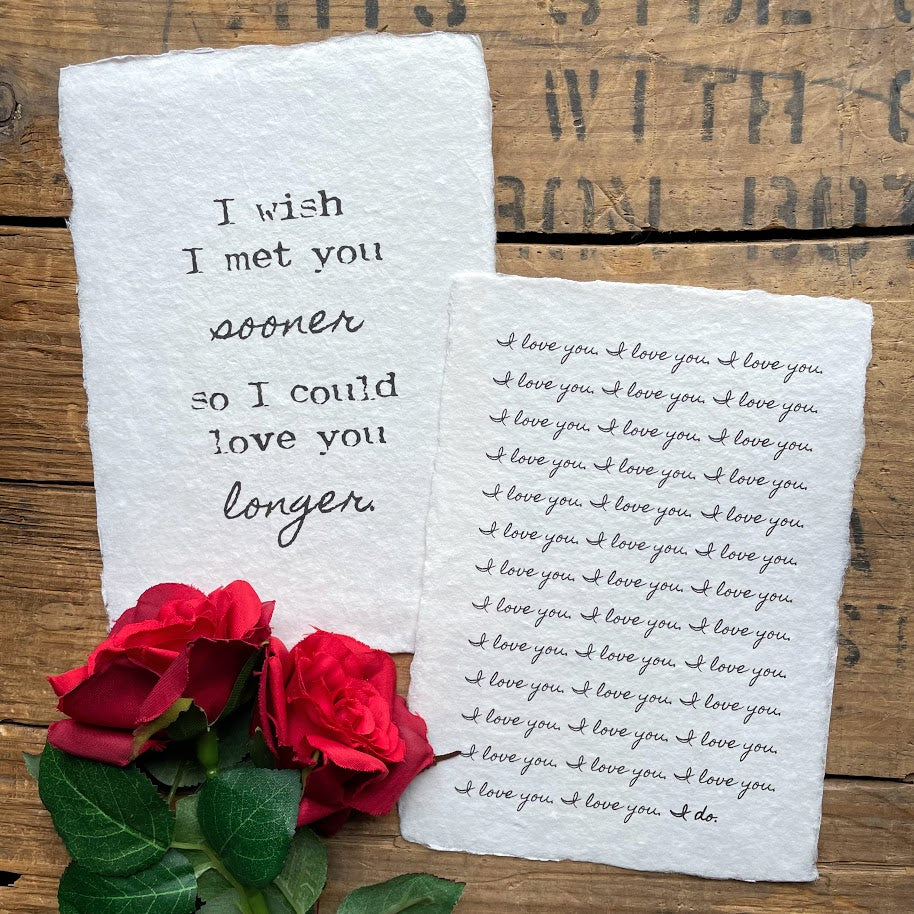 WITH
I wish
I met you
sooner
so I could
love you
longer.
I love you. I love you. I love you.
I love you. I love you. I love you.
I love you. I love you. I love you.
I love you. I love you. I love you.
I love you. I love you. I love you.
I love you. I love you. I love you.
I love you. I love you. I love you.
I love you. I love you. I love you.
I love you. I love you. I love you.
I love you. I love you. I love you.
I love you. I love you. I love you.
I love you. I love you. I love you.
I love you. I love you. I do.